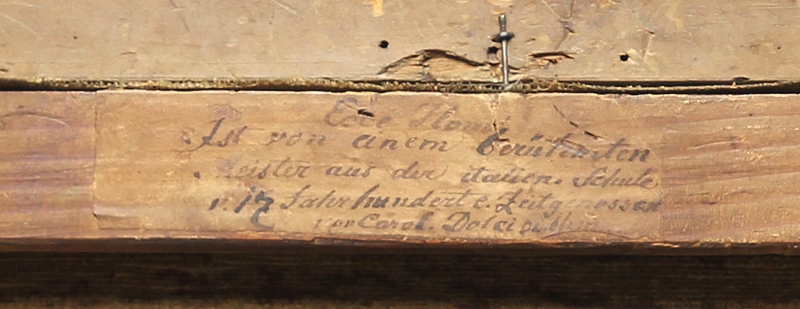 Ecce Homo
Ist von einem berühmten
Meister aus der italien. Schule
v. 17 Jahrhundert e. Zeitgenossen
von Carol. Dolci